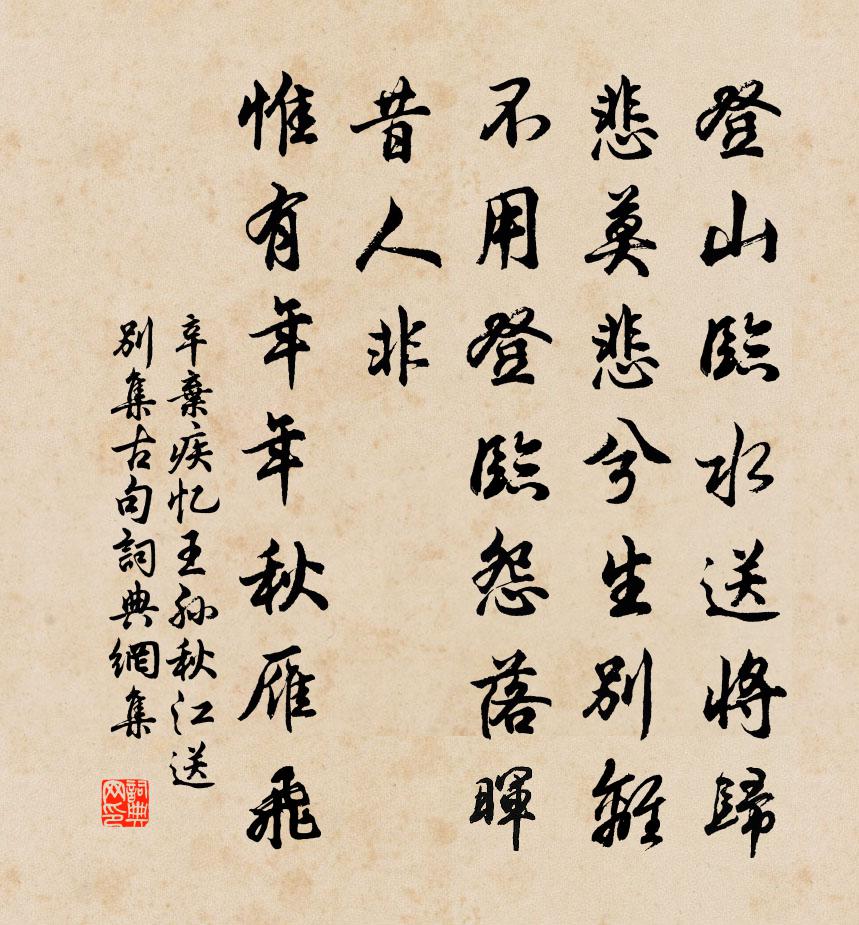 登山臨水送將歸
悲莫悲兮生別離
不用登臨怨落暉
昔人非
惟有年年秋雁飛
辛棄疾忆王孙秋江送
別集古句詞典網集
詞典网印